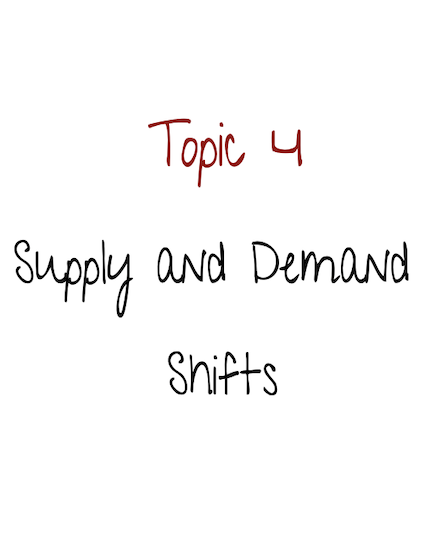 Topic 4
Supply and Demand
Shifts